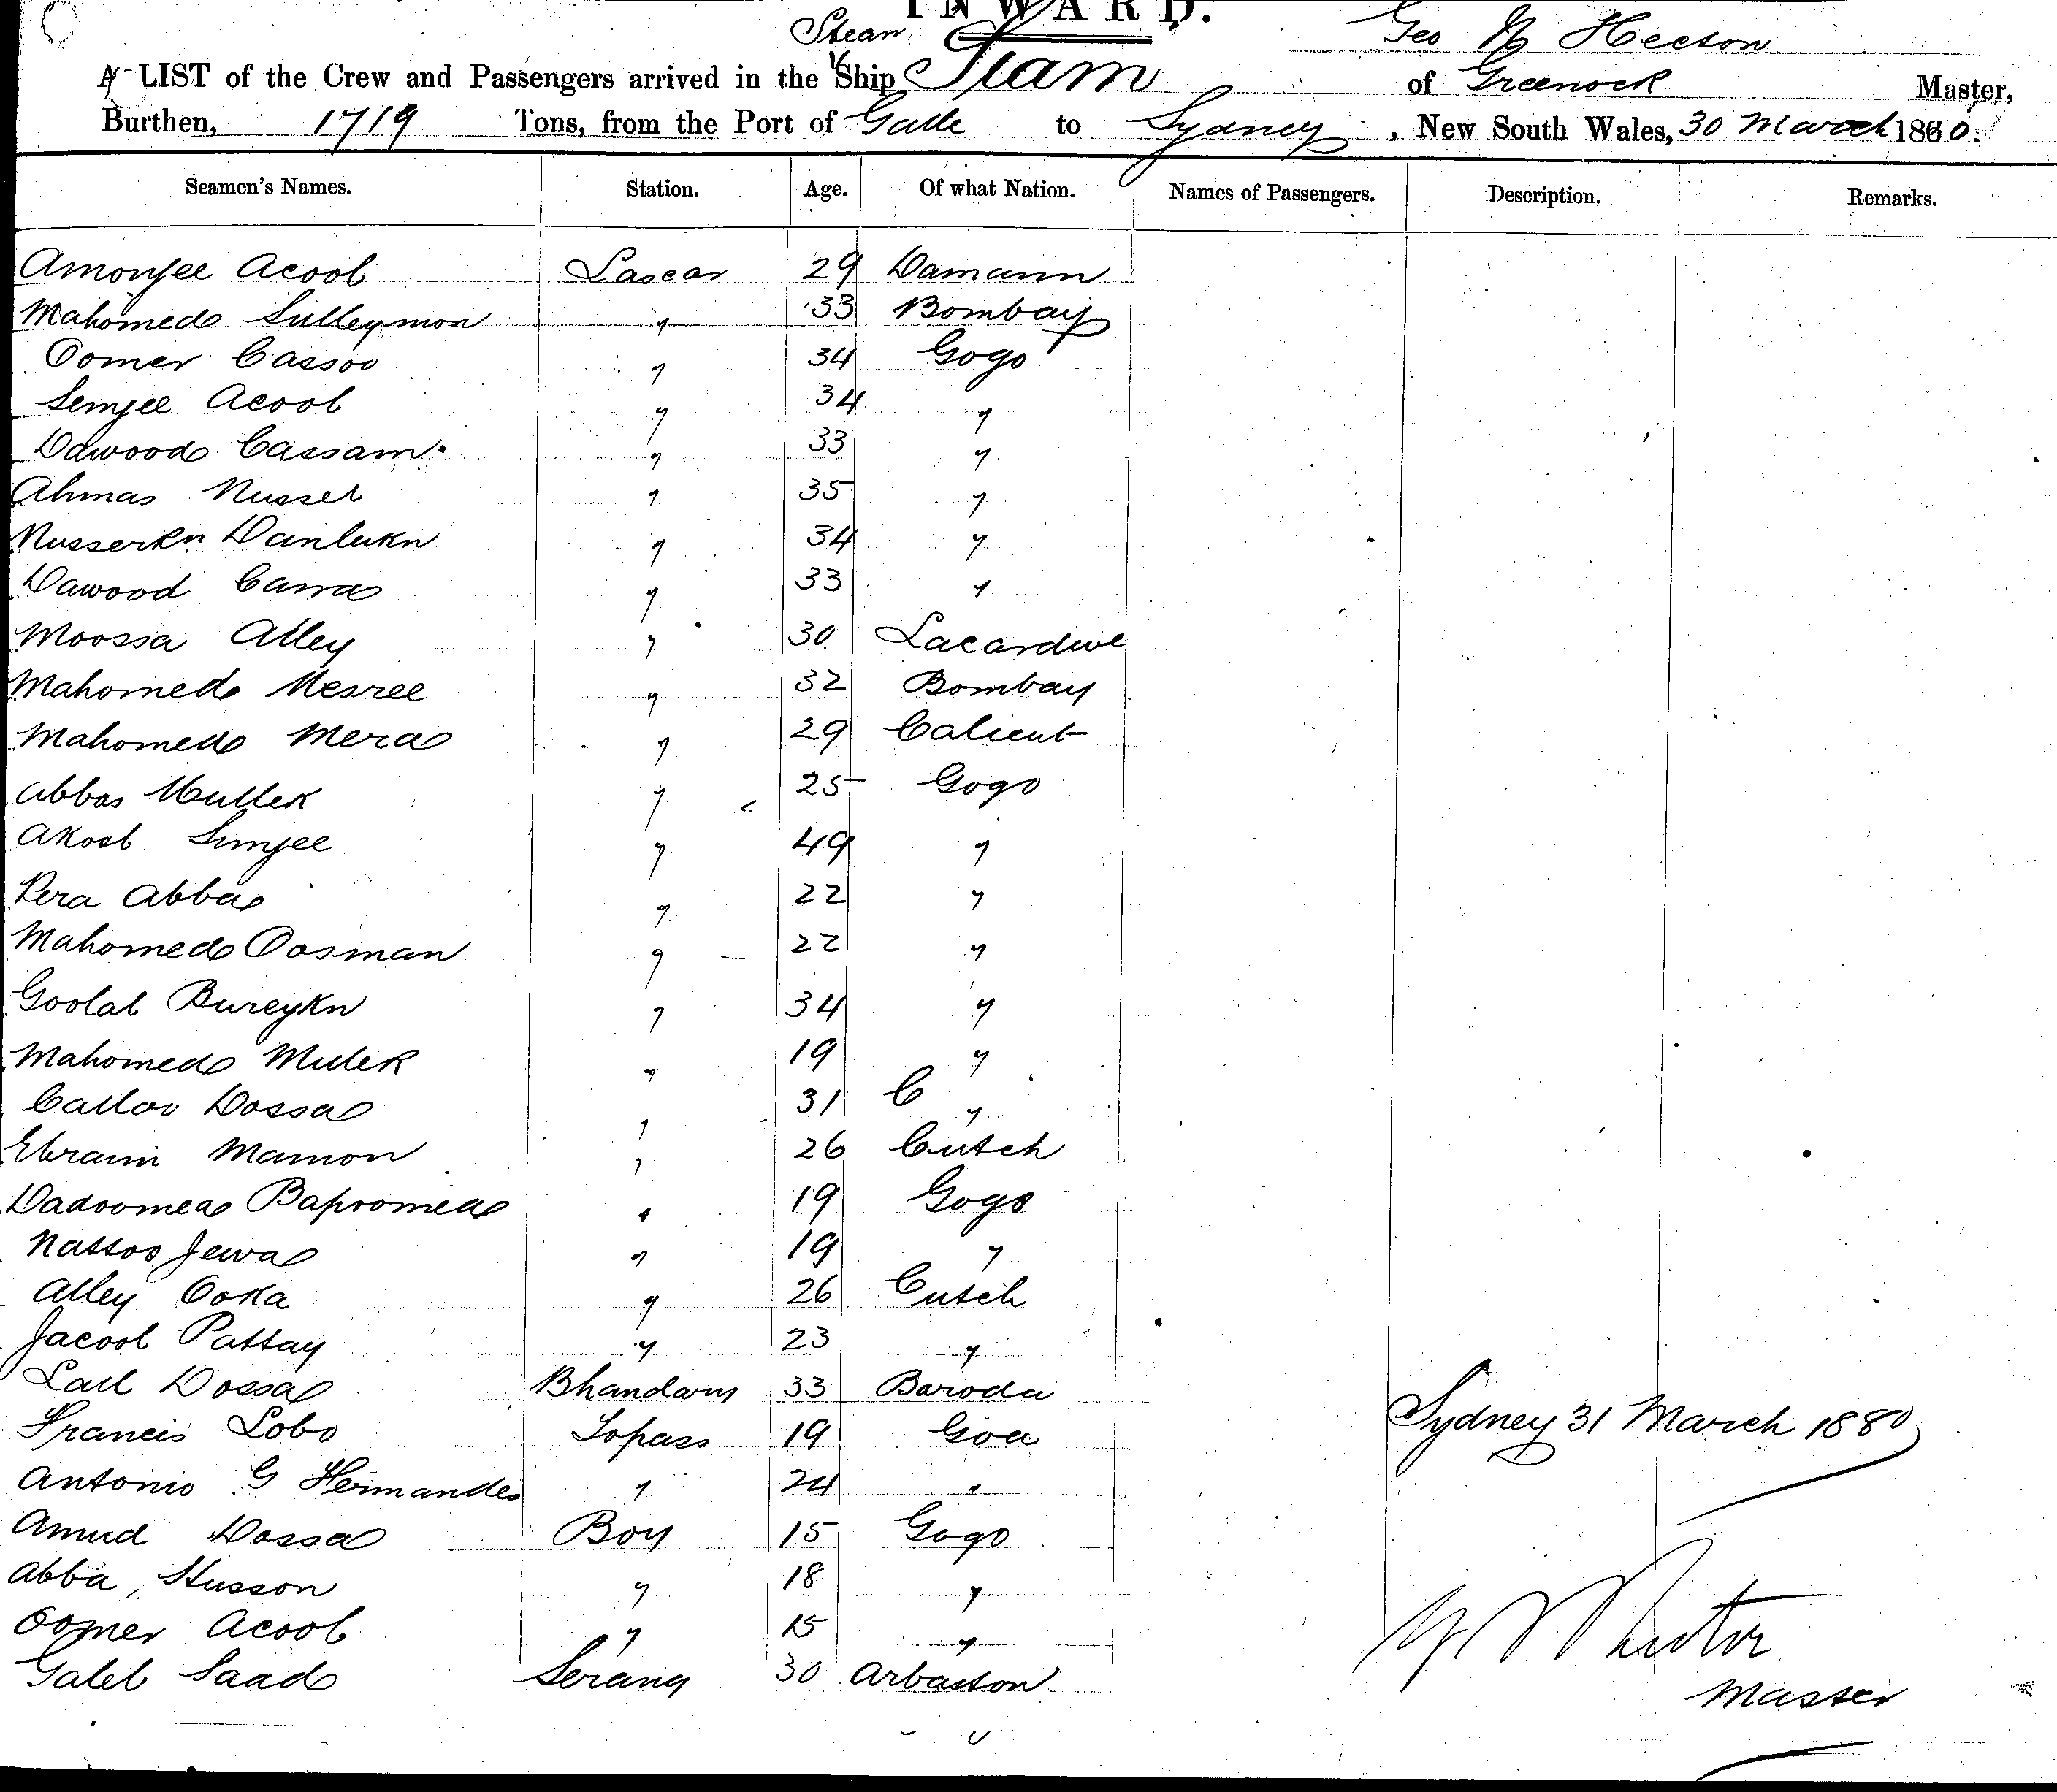 INWARD.
Steam Geo N Hector
A LIST of the Crew and Passengers arrived in the Ship Siam of Greenock Master,
Burthen, 1719 Tons, from the Port of Galle to Sydney, New South Wales, 30 March 1880.
Seamen's Names. Station. Age. Of what Nation. Names of Passengers. Description. Remarks.
Amonjee Acoob Lascar 29 Damann
Mahomed Sulleymon " 33 Bombay
Oomer Cassoo " 34 Gogo
Semjee Acoob " 34 "
Dawood Cassam " 33 "
Ahmas Nusser " 35 "
Nusserkn Danlukn " 34 "
Dawood " 33 "
Moossa Alley " 30 Lacardive
Mahomed Mesree " 32 Bombay
Mahomed Mera " 29 Calicut
Abbas Mullek " 25 Gogo
Akoob Simjee " 49 "
Pera Abba " 22 "
Mahomed Oosman " 22 "
Goolab Bureykn " 34 "
Mahomed Mulek " 19 "
Calloo Dossa " 31 C "
Ebraim Mamon " 26 Cutch
Dadoomea Bapoomea " 19 Gogo
Nattoo Jewa " 19 "
Alley Ooka " 26 Cutch
Jacoob Pattay " 23 "
Lall Dossa Bhandary 33 Baroda
Francis Lobo Topass 19 Goa Sydney 31 March 1880
Antonio G Hermandes " 24 "
Amud Dossa Boy 15 Gogo
Abba Husson " 18 "
Oomer Acoob " 15 " Hector
Galeb Saad Serang 30 Arbaston Master